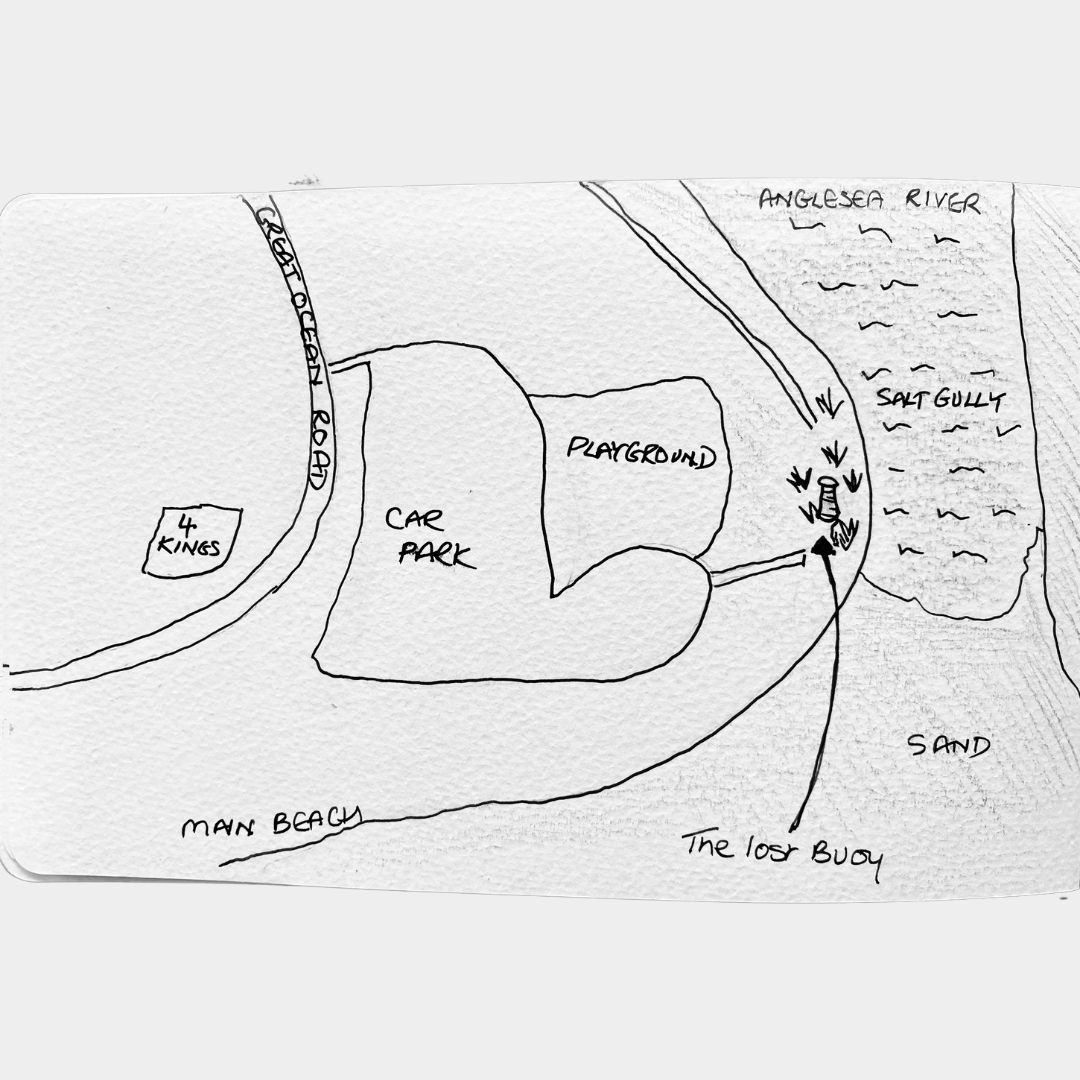 ANGLESEA RIVER
GREAT OCEAN ROAD
SALT GULLY
PLAYGROUND
4
KINGS
CAR
PARK
SAND
MAIN BEACH
The lost Buoy